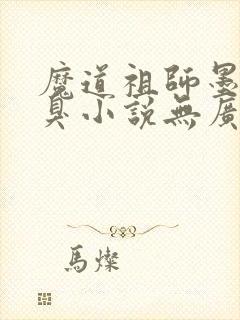 魔道祖師墨
臭小說無廣
馬燦